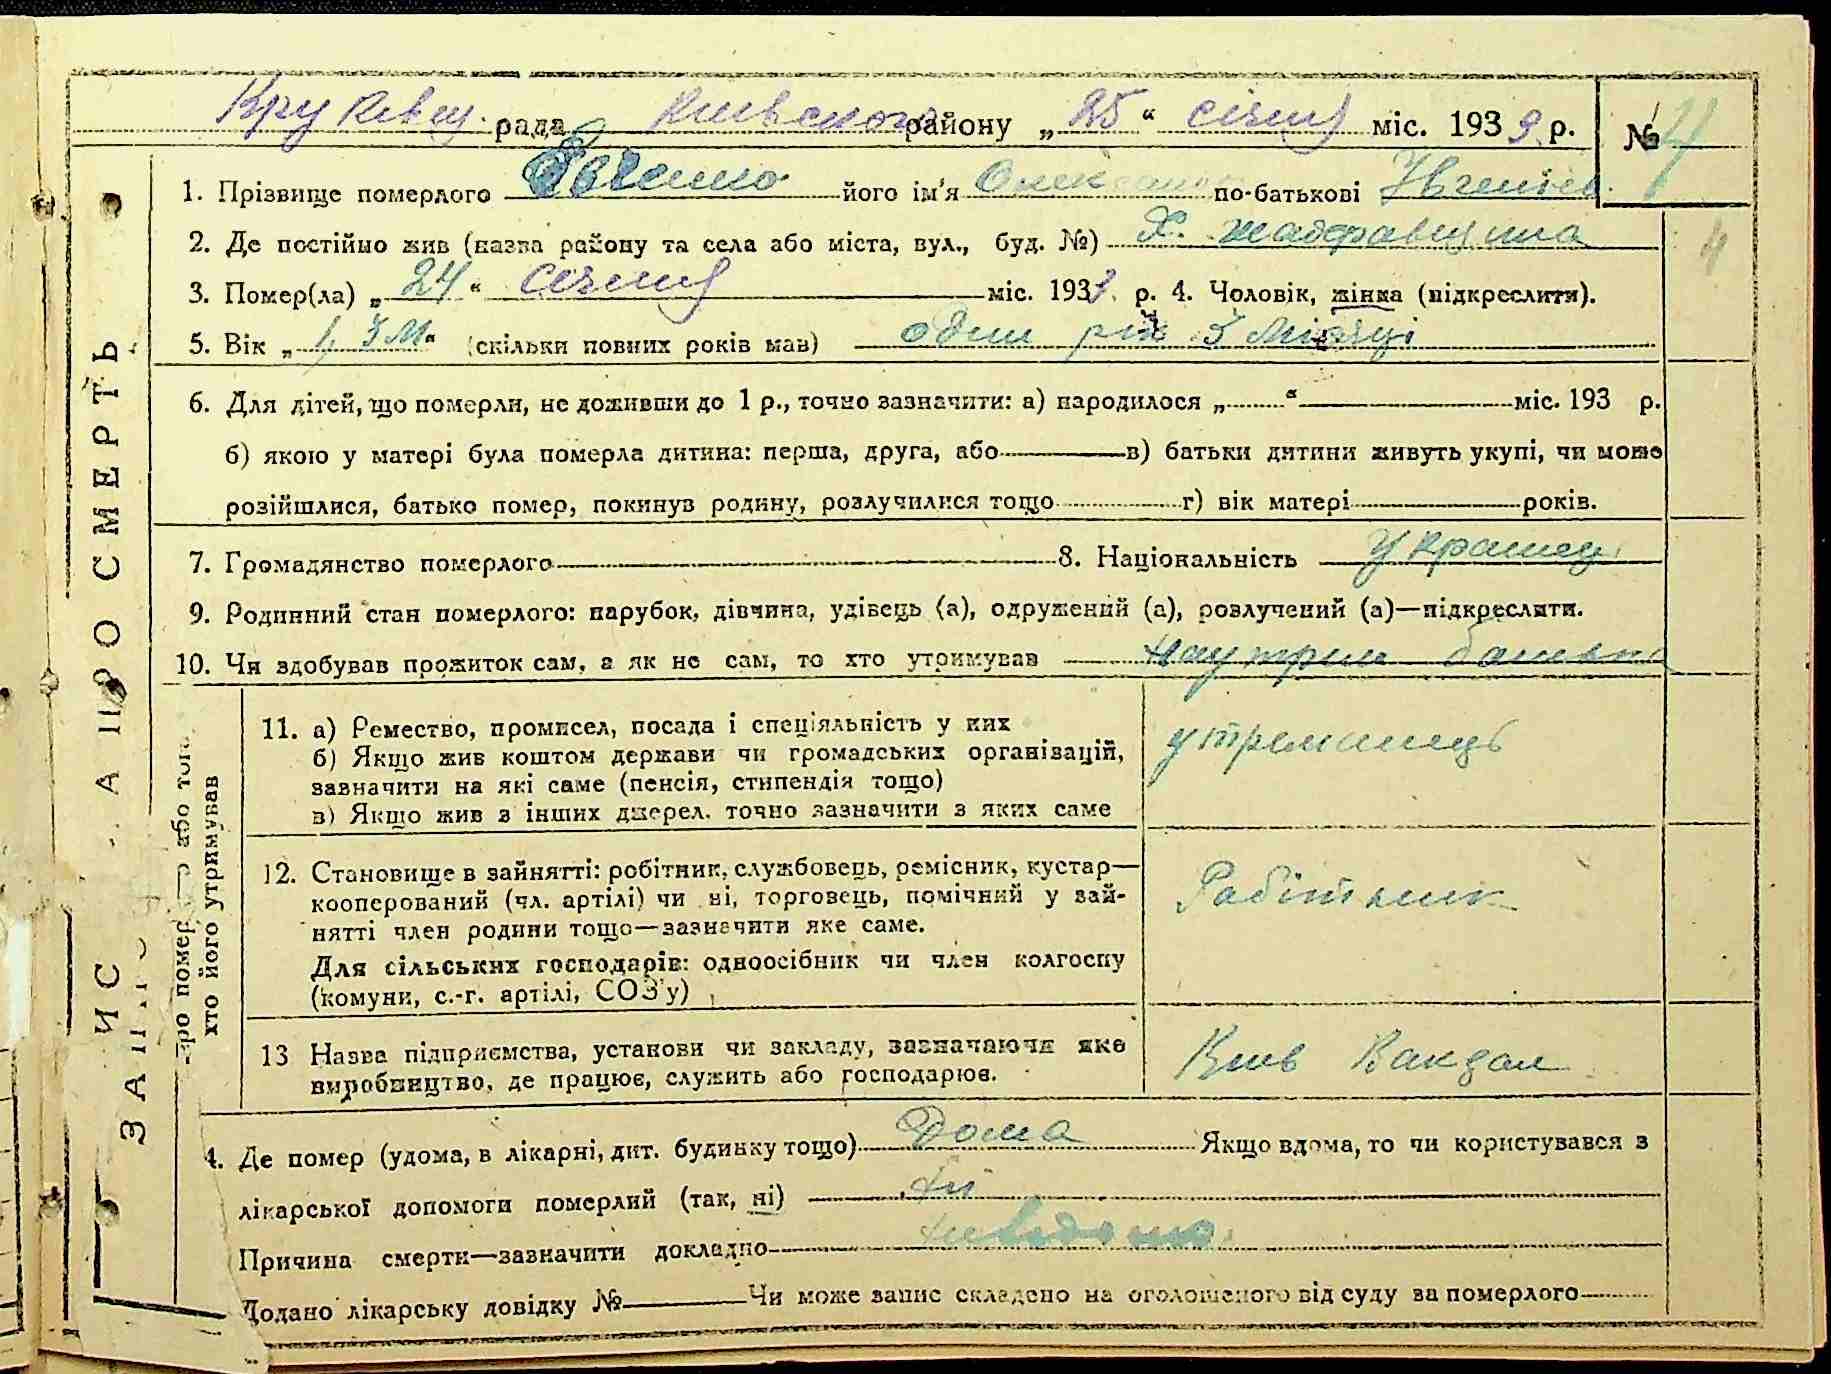 рада Київського району „25“ січня міс. 193 р. № 4
1. Прізвище померлого його ім'я по-батькові
4
2. Де постійно жив (назва району та села або міста, вул., буд. №) Х.
3. Помер(ла) „24“ січня міс. 193 р. 4. Чоловік, жінка (підкреслити).
5. Вік „1, 3 м“ (скільки повних років мав) один рік 3 місяці
6. Для дітей, що померли, не доживши до 1 р., точно зазначити: а) народилося „ “ міс. 193 р.
б) якою у матері була померла дитина: перша, друга, або в) батьки дитини живуть укупі, чи може
розійшлися, батько помер, покинув родину, розлучилися тощо г) вік матері років.
7. Громадянство померлого 8. Національність Українец
9. Родинний стан померлого: парубок, дівчина, удівець (а), одружений (а), розлучений (а)—підкреслити.
10. Чи здобував прожиток сам, а як не сам, то хто утримував на утрим батька
11. а) Ремество, промисел, посада і спеціяльність у них
б) Якщо жив коштом держави чи громадських організацій,
зазначити на які саме (пенсія, стипендія тощо)
в) Якщо жив з інших джерел. точно зазначити з яких саме
утриманець
12. Становище в зайнятті: робітник, службовець, ремісник, кустар—
кооперований (чл. артілі) чи ні, торговець, помічний у зай-
нятті член родини тощо—зазначити яке саме.
Для сільських господарів: одноосібник чи член колгоспу
(комуни, с.-г. артілі, СОЗ'у)
Робітник
13 Назва підприємства, установи чи закладу, зазначаючи яке
виробництво, де працює, служить або господарює.
Київ Вакзал
4. Де помер (удома, в лікарні, дит. будинку тощо) Дома Якщо вдома, то чи користувався з
лікарської допомоги померлий (так, ні) ні
Причина смерти—зазначити докладно невідомо
Додано лікарську довідку № Чи може запис складено на оголошеного від суду за померлого
ЗАПИС ПРО СМЕРТЬ
або того,
хто його утримував